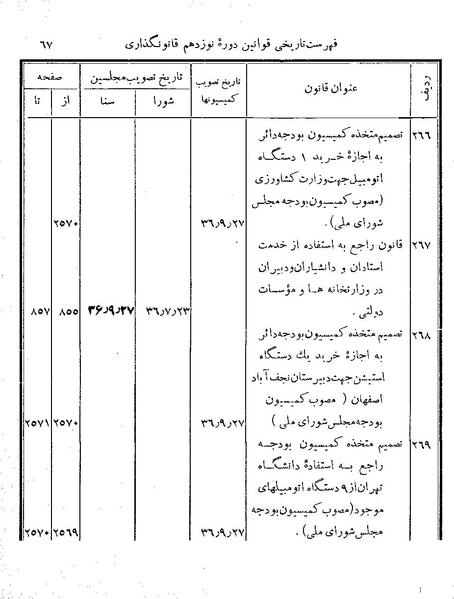 فهرست تاریخی قوانین دورهٔ نوزدهم قانونگذاری ۶۷
ردیف عنوان قانون تاریخ تصویب کمیسیونها تاریخ تصویب مجلسین صفحه
شورا سنا از تا
۲۶۶ تصمیم متخذه کمیسیون بودجه دائر
به اجازهٔ خرید ۱ دستگاه
اتومبیل جهت وزارت کشاورزی
(مصوب کمیسیون بودجه مجلس
شورای ملی). ۳۶٫۹٫۲۷ ۲۵۷۰
۲۶۷ قانون راجع به استفاده از خدمت
استادان و دانشیاران و دبیران
در وزارتخانه ها و مؤسسات
دولتی. ۳۶٫۷٫۲۳ ۳۶٫۹٫۲۷ ۸۵۵ ۸۵۷
۲۶۸ تصمیم متخذه کمیسیون بودجه دائر
به اجازهٔ خرید یك دستگاه
استیشن جهت دبیرستان نجف آباد
اصفهان ( مصوب کمیسیون
بودجه مجلس شورای ملی ) ۳۶٫۹٫۲۷ ۲۵۷۰ ۲۵۷۱
۲۶۹ تصمیم متخذه کمیسیون بودجه
راجع به استفادهٔ دانشگاه
تهران از ۹ دستگاه اتومبیلهای
موجود (مصوب کمیسیون بودجه
مجلس شورای ملی). ۳۶٫۹٫۲۷ ۲۵۶۹ ۲۵۷۰